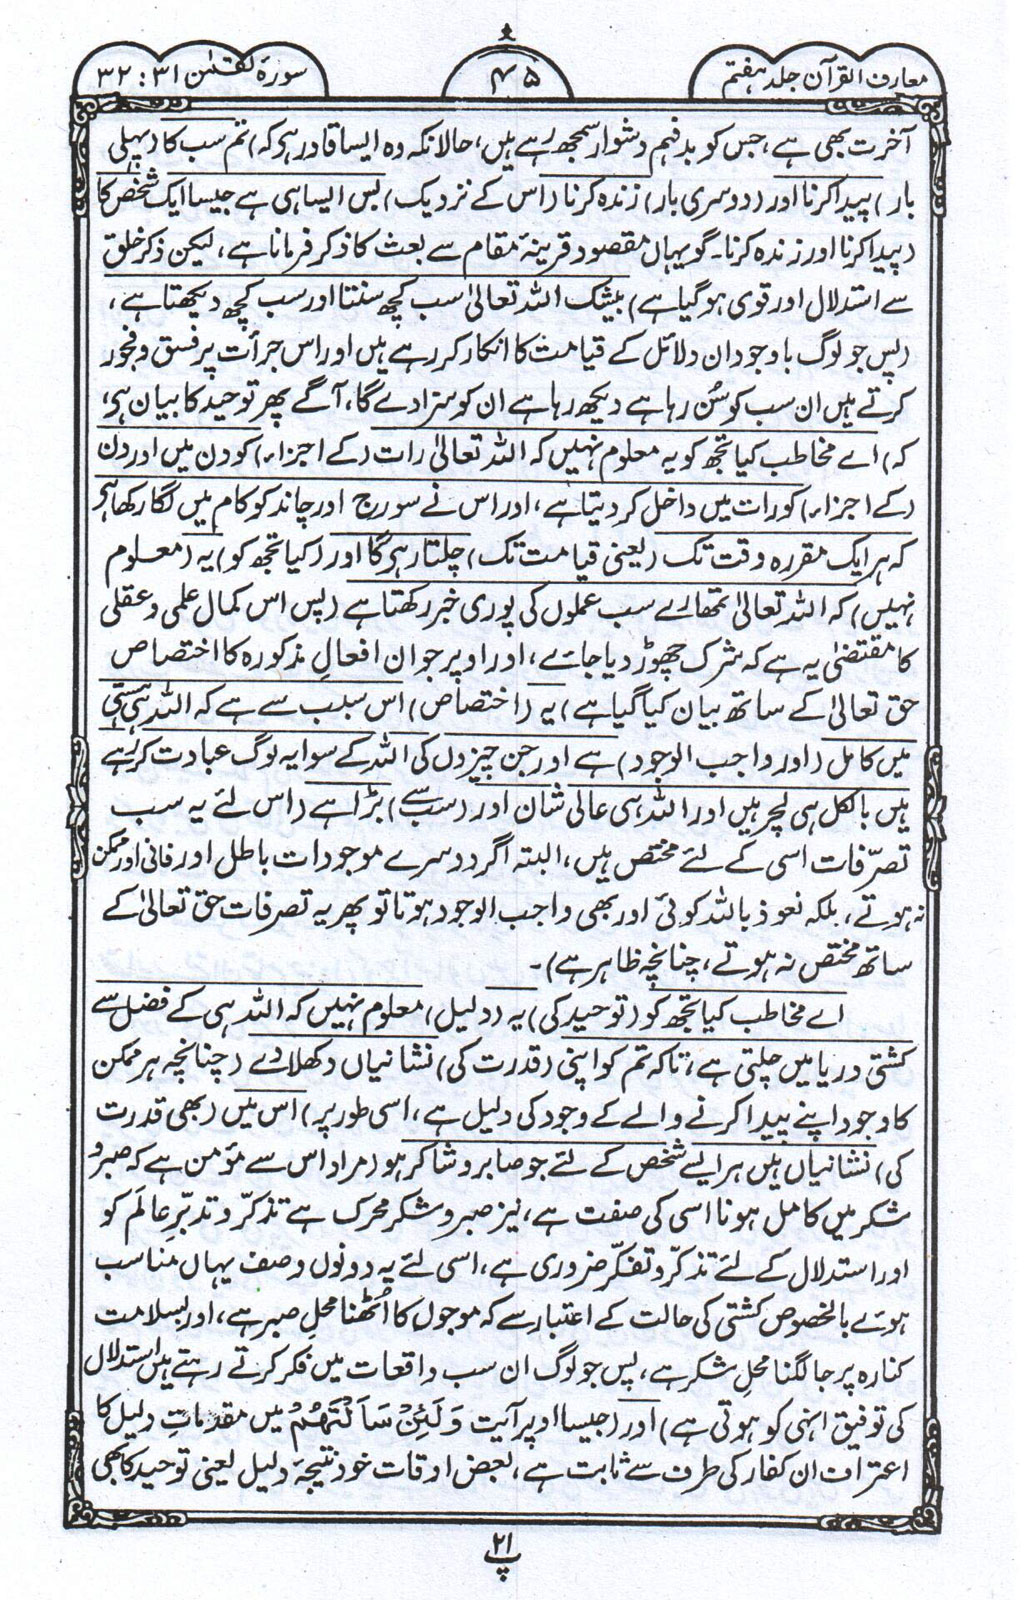 معارف القرآن جلد ہفتم
۴۵
سورۂ لقمٰن ۳۱ : ۳۲
آخرت بھی ہے، جس کو بدفہم دشوار سمجھ رہے ہیں، حالانکہ وہ ایسا قادر ہی کہ) تم سب کا (پہلی
بار) پیدا کرنا اور (دوسری بار) زندہ کرنا (اس کے نزدیک) بس ایسا ہی ہے جیسا ایک شخص کا
(پیدا کرنا اور زندہ کرنا۔ گو یہاں مقصود قرینۂ مقام سے بعث کا ذکر فرمانا ہے، لیکن ذکر خلق
سے استدلال اور قوی ہو گیا ہے) بیشک اللہ تعالیٰ سب کچھ سنتا اور سب کچھ دیکھتا ہے،
(پس جو لوگ باوجود ان دلائل کے قیامت کا انکار کر رہے ہیں اور اس جرأت پر فسق و فجور
کرتے ہیں ان سب کو سُن رہا ہے دیکھ رہا ہے ان کو سزا دے گا، آگے پھر توحید کا بیان ہی،
کہ) اے مخاطب کیا تجھ کو یہ معلوم نہیں کہ اللہ تعالیٰ رات (کے اجزاء) کو دن میں اور دن
(کے اجزاء) کو رات میں داخل کر دیتا ہے، اور اس نے سورج اور چاند کو کام میں لگا رکھا ہی
کہ ہر ایک مقررہ وقت تک (یعنی قیامت تک) چلتا رہی گا اور (کیا تجھ کو) یہ (معلوم
نہیں) کہ اللہ تعالیٰ تمھارے سب عملوں کی پوری خبر رکھتا ہے (پس اس کمال علمی و عقلی
کا مقتضیٰ یہ ہے کہ شرک چھوڑ دیا جائے، اور اوپر جو ان افعالِ مذکورہ کا اختصاص
حق تعالیٰ کے ساتھ بیان کیا گیا ہے) یہ (اختصاص) اس سبب سے ہے کہ اللہ ہی ہستی
میں کامل (اور واجب الوجود) ہے اور جن چیزوں کی اللہ کے سوا یہ لوگ عبادت کر رہے
ہیں بالکل ہی لچر ہیں اور اللہ ہی عالی شان اور (سب سے) بڑا ہے (اس لئے یہ سب
تصرّفات اسی کے لئے مختص ہیں، البتہ اگر دوسرے موجودات باطل اور فانی اور ممکن
نہ ہوتے، بلکہ نعوذ باللہ کوئی اور بھی واجب الوجود ہوتا تو پھر یہ تصرفات حق تعالیٰ کے
ساتھ مختص نہ ہوتے، چنانچہ ظاہر ہے)۔
اے مخاطب کیا تجھ کو (توحید کی) یہ (دلیل) معلوم نہیں کہ اللہ ہی کے فضل سے
کشتی دریا میں چلتی ہے، تاکہ تم کو اپنی (قدرت کی) نشانیاں دکھلادے (چنانچہ ہر ممکن
کا وجود اپنے پیدا کرنے والے کے وجود کی دلیل ہے، اسی طور پر) اس میں (بھی قدرت
کی) نشانیاں ہیں ہر ایسے شخص کے لئے جو صابر و شاکر ہو (مراد اس سے مؤمن ہے کہ صبر و
شکر میں کامل ہونا اسی کی صفت ہے، نیز صبر و شکر محرک ہے تذکّر و تدبّرِ عالَم کو
اور استدلال کے لئے تذکّر و تفکّر ضروری ہے، اسی لئے یہ دونوں وصف یہاں مناسب
ہوئے بالخصوص کشتی کی حالت کے اعتبار سے کہ موجوں کا اُٹھنا محلِ صبر ہے، اور بسلامت
کنارہ پر جا لگنا محلِ شکر ہے، پس جو لوگ ان سب واقعات میں فکر کرتے رہتے ہیں استدلال
کی توفیق انہی کو ہوتی ہے) اور (جیسا اوپر آیت وَلَئِنْ سَاَلْتَهُمْ میں مقدمات دلیل کا
اعتراف ان کفار کی طرف سے ثابت ہے، بعض اوقات خود نتیجۂ دلیل یعنی توحید کا بھی
پ ۲۱